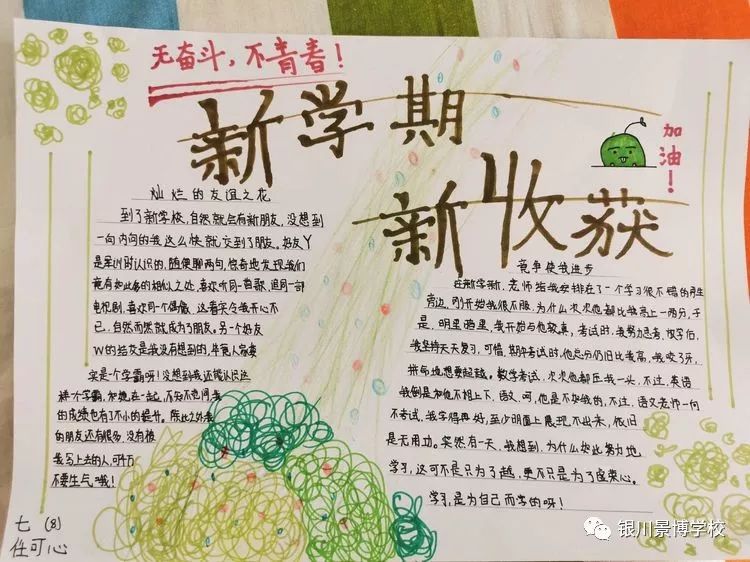 无奋斗，不青春！
新学期
新收获
加油！
灿烂的友谊之花
到了新学校，自然就会有新朋友，没想到
一向内向的我这么快就交到了朋友。好友Y
是军训时认识的，随便聊两句，惊奇地发现我们
竟有如此多的相似之处，喜欢听同一首歌，追同一部
电视剧，喜欢同一个偶像，这着实令我开心不
已，自然而然就成为了朋友。另一个好友
W的结交是我没有想到的，毕竟人家
实是个学霸呀！没想到我还能认识这
样个学霸，和她在一起，不知不觉间我
的成绩也有了不小的提升。除此之外我
的朋友还有很多，没有被
我写上去的人，可千万
不要生气哦！
竞争使我进步
在新学期，老师给我安排在了一个学习很不错的男生
旁边，刚开始我很不服，为什么次次他都比我高上一两分，于
是，明里暗里，我开始与他较真，考试时，我努力思考，放学后，
我坚持天天复习，可惜，期中考试时，他总分仍旧比我高，我咬了牙，
拼命地想要超越。数学考试，次次他都压我一头，不过，英语
我倒是和他不相上下，语文，呵，他是不如我的，不过，语文老师一向
不考试，我学得再好，至少明面上展现不出来，依旧
是无用功。突然有一天，我想到，为什么如此努力地
学习，这可不是只为了超，更不只是为了虚荣心。
学习，是为自己而学的呀！
七（8）
任可心
银川景博学校